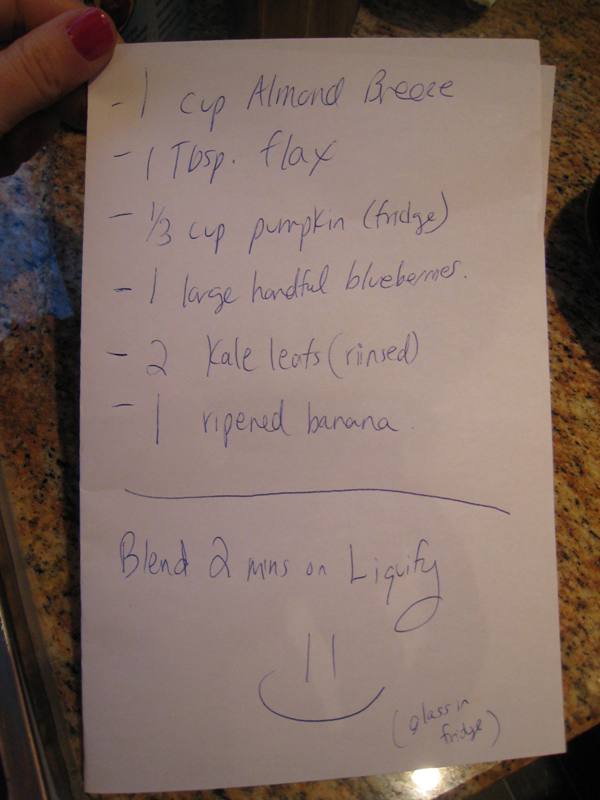 - 1 cup Almond Breeze
- 1 Tbsp. flax
- 1/3 cup pumpkin (fridge)
- 1 large handful blueberries.
- 2 Kale leafs (rinsed)
- 1 ripened banana.
Blend 2 mins on Liquify
(glass in
fridge)